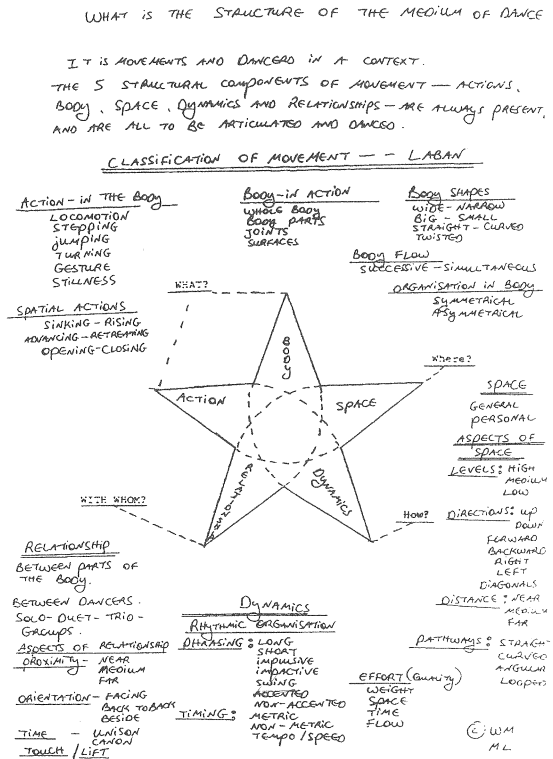 WHAT IS THE STRUCTURE OF THE MEDIUM OF DANCE
IT IS MOVEMENTS AND DANCERS IN A CONTEXT.
THE 5 STRUCTURAL COMPONENTS OF MOVEMENT — ACTIONS,
BODY, SPACE, DYNAMICS AND RELATIONSHIPS — ARE ALWAYS PRESENT,
AND ARE ALL TO BE ARTICULATED AND DANCED.
CLASSIFICATION OF MOVEMENT — — LABAN
ACTION - IN THE BODY
LOCOMOTION
STEPPING
JUMPING
TURNING
GESTURE
STILLNESS
SPATIAL ACTIONS
SINKING - RISING
ADVANCING - RETREATING
OPENING - CLOSING
BODY - IN ACTION
WHOLE BODY
BODY PARTS
JOINTS
SURFACES
BODY SHAPES
WIDE - NARROW
BIG - SMALL
STRAIGHT - CURVED
TWISTED
BODY FLOW
SUCCESSIVE - SIMULTANEOUS
ORGANISATION IN BODY
SYMMETRICAL
ASYMMETRICAL
WHAT?
BODY
ACTION
SPACE
RELATIONSHIP
DYNAMICS
Where?
WITH WHOM?
HOW?
SPACE
GENERAL
PERSONAL
ASPECTS OF
SPACE
LEVELS: HIGH
MEDIUM
LOW
DIRECTIONS: UP
DOWN
FORWARD
BACKWARD
RIGHT
LEFT
DIAGONALS
DISTANCE: NEAR
MEDIUM
FAR
PATHWAYS: STRAIGHT
CURVED
ANGULAR
LOOPED
RELATIONSHIP
BETWEEN PARTS OF
THE BODY.
BETWEEN DANCERS.
SOLO - DUET - TRIO -
GROUPS.
ASPECTS OF RELATIONSHIP
PROXIMITY - NEAR
MEDIUM
FAR
ORIENTATION - FACING
BACK TO BACK
BESIDE
TIME - UNISON
CANON
TOUCH / LIFT
DYNAMICS
RHYTHMIC ORGANISATION
PHRASING: LONG
SHORT
IMPULSIVE
IMPACTIVE
SWING
ACCENTED
NON-ACCENTED
TIMING: METRIC
NON-METRIC
TEMPO/SPEED
EFFORT (QUALITY)
WEIGHT
SPACE
TIME
FLOW
©: WM
ML